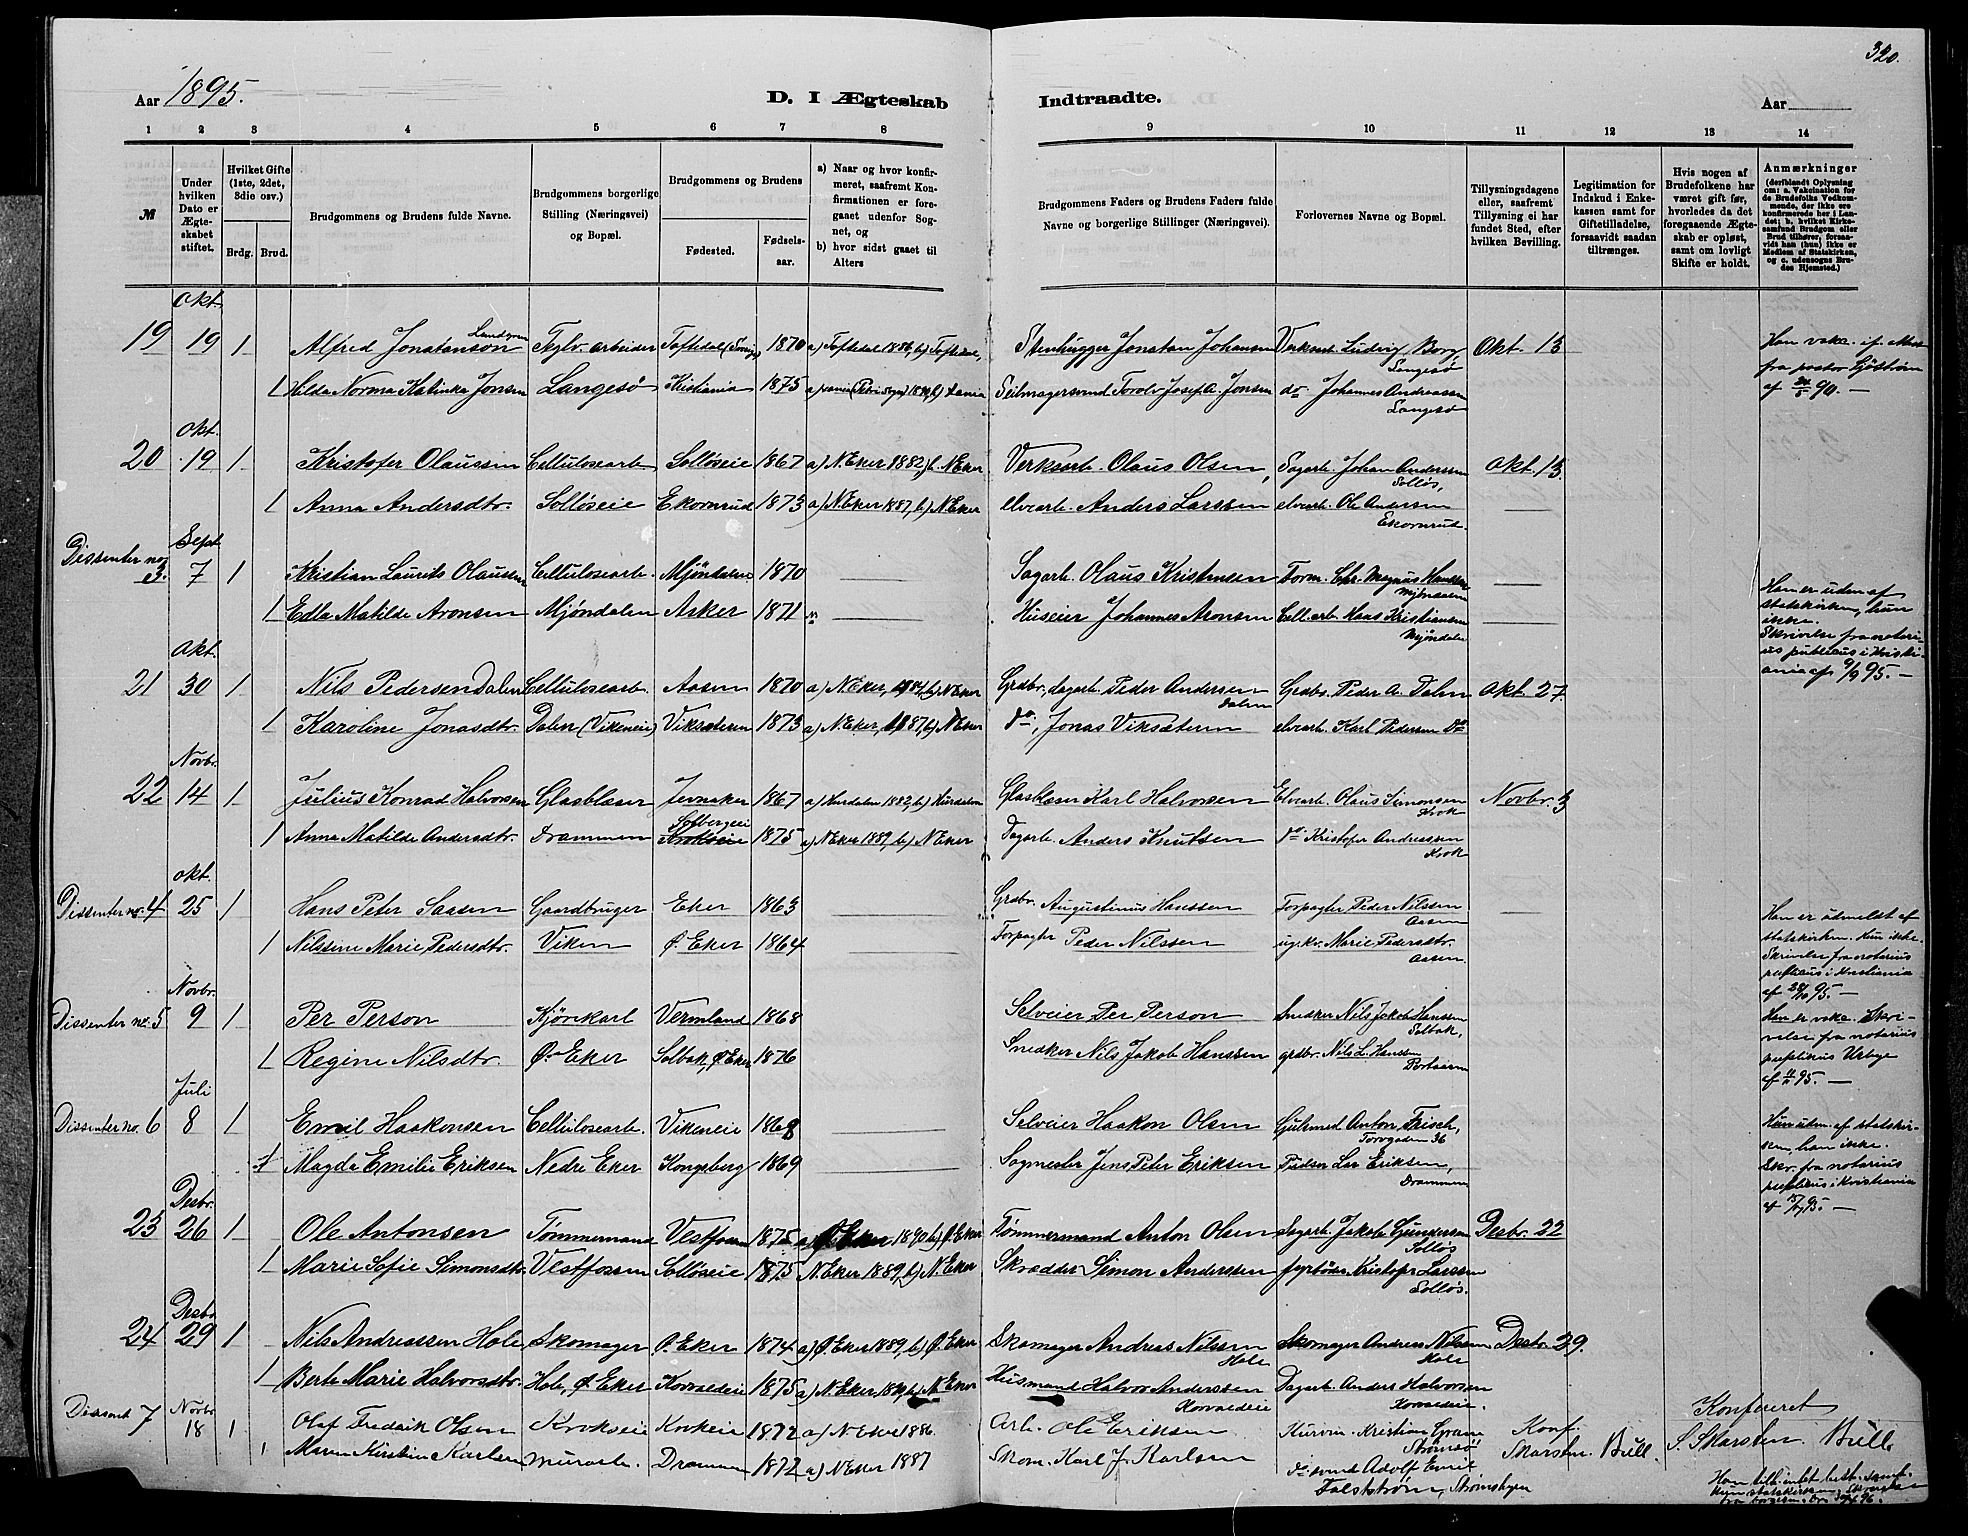 320.
Aar 1895.
D. I Ægteskab
Indtraadte.
Aar
1 2 3 4 5 6 7 8
9 10 11 12 13 14
№
Under hvilken Dato er Ægteskabet stiftet.
Hvilket Gifte (1ste, 2det, 3die osv.)
Brdg. Brud.
Brudgommens og Brudens fulde Navne.
Brudgommens borgerlige Stilling (Næringsvei) og Bopæl.
Brudgommens og Brudens
Fødested.
Fødselsaar.
a) Naar og hvor konfirmeret, saafremt Konfirmationen er foregaaet udenfor Sognet, og
b) hvor sidst gaaet til Alters
Brudgommens Faders og Brudens Faders fulde Navne og borgerlige Stillinger (Næringsvei).
Forlovernes Navne og Bopæl.
Tillysningsdagene eller, saafremt Tillysning ei har fundet Sted, efter hvilken Bevilling.
Legitimation for Indskud i Enkekassen samt for Giftetilladelse, forsaavidt saadan tiltrænges.
Hvis nogen af Brudefolkene har været gift før, hvorledes da det foregaaende Ægteskab er opløst, samt om lovligt Skifte er holdt.
Anmærkninger
(deriblandt Oplysning om: a. Vakcination for de Brudefolks Vedkommende, der ikke ere konfirmerede her i Landet; b. hvilket Kirkesamfund Brudgom eller Brud tilhører, forsaavidt han (hun) ikke er Medlem af Statskirken, og c. udensogns Brudes Hjemsted.)
Okt.
19 19 1 Alfred Jonatanson Lundgren Teglv. arbeider Toftedal 1870 a) Toftedal 1886, b) Toftedal, Stenhugger Jonatan Johansen Verksarb. Ludvig Borg, Langesø Okt. 13 Han vakc. af
fra pastor Sjöström
1 Hilda Norma Katinka Jonsen Langesø Kristiania 1875 Seilmagersvend Torolv Josef A. Jonsen do Johannes Andreassen Langesø
Okt.
20 19 1 Kristofer Olaussen Cellulosearb Solløseie 1867 a) N. Eker 1882, b. N. Eker Verksarb. Olaus Olsen, Sagarb. Johan Anderssen Solløs, Okt. 13.
1 Anna Andersdtr. Solløseie Ekornrud 1873 a) N. Eker 1887, b) N. Eker elvearb. Anders Larssen elvearb. Ole Andersen Ekornrud.
Dissenter no. 3. Sept 7 1 Kristian Laurits Olaussen Cellulosearb. Mjøndalen 1870 Sagarb. Olaus Kristensen Form. Chr. Magnus Hanssen Mjøndalen
Han er uden af statskirken, hun ikke.
Skrivelse fra notarius publicus i Kristiania af 9/9 95. —
1 Edla Matilde Aronsen Mjøndalen Asker 1871 Huseier Johannes Aronsen Cell. arb. Hans Kristiansen Mjøndalen
Okt.
21 30 1 Nils Pedersen Dalen Cellulosearb. Aasen 1870 a) N. Eker, 1884, b) N. Eker Grdbr., dagarb. Peder Andersen Dalen Grdbr. Peder A. Dalen Okt. 27.
1 Karoline Jonasdtr. Dalen (Vikeneie) Viksæteren 1873 a) N. Eker, 1887, b) N. Eker Do, Jonas Viksæteren elvearb. Karl Pedersen Do
Novbr.
22 14 1 Julius Konrad Halvorsen Glasblæser Jevnaker 1867 a) Hurdalen 1882, b) Hurdalen Glasblæser Karl Halvorsen Elvearb. Olaus Simonsen Krok Novbr. 3
1 Anna Matilde Andersdtr. Drammen Solbergeie Krokseie 1875 a) N. Eker 1889, b) N. Eker Dagarb. Anders Knutsen Do Kristofer Andreassen Krok
Okt.
Dissenter no. 4 25 1 Hans Peter Saasen Gaardbruger Eker 1863 Grdbr. Augustinus Hanssen Forpagter Peder Nilssen Aasen
Han er udmeldt af statskirken. Hun ikke. Skrivelse fra notarius publicus i Kristiania af 28/10 95. —
1 Nilssine Marie Pedersdtr. Viken Ø. Eker 1864 Forpagter Peder Nilssen ug. kv. Marie Pedersdtr. Aasen.
Novbr.
Dissenter no. 5 9 1 Per Person Kjørekarl Vermland 1868 Selveier Per Person Snedker Nils Jakob Hanssen Solbak,
Han er vakc. Skrivelse fra notarius publicus Urbye
1 Regine Nilsdtr. Ø. Eker Solbak, Ø. Eker 1876 Snedker Nils Jakob Hanssen grdbr. Nils L. Hanssen Portaasen
Juli
Dissenter no. 6 8 1 Emil Haakonsen Cellulosearb. Vikeneie 1868 Selveier Haakon Olsen Gjørtmed Anton Frisch, Torvgaden 36
Hun utm. af statskirken, han ikke. Skr. fra notarius publicus i Kristiania
1 Magda Emilie Eriksen Nedre Eker Kongsberg 1869 Sagmester Jens Peter Eriksen Lar Eriksen, Drammen
Desbr.
23 26 1 Ole Antonsen Tømmermand Vestfossen 1875 a) Ø. Eker 1890 b) Ø. Eker Tømmermand Anton Olsen Dagarb. Jakob Gundersen Solløs Desbr. 22
1 Marie Sofie Simonsdtr. Vestfossen Solløseie 1875 N. Eker 1889, b) N. Eker Skrædder Simon Anderssen fyrbøder Kristofer Larssen Solløs.
Desbr
24 29 1 Nils Andreassen Hole Skomager Ø. Eker 1874 a) Ø. Eker 1889, b) Ø. Eker Skomager Andreas Nilssen Hole Skomager Andreas Nilssen Hole Desbr. 29.
1 Berte Marie Halvorsdtr. Hole, Ø. Eker Korvaldeie 1875 a) N. Eker, b) N. Eker Husmand Halvor Anderssen Korvaldeie Dagarb. Anders Halvorsen Korvaldeie.
Dissent 7 Novbr 18 1 Olaf Fredrik Olsen Krokseie Krokeie 1872 a) N. Eker 1886. Arb. Ole Eriksen Kurvm. Kristian Gram Strømsø
1 Maren Kirstine Karlsen murarb. Drammen 1872 a) N. Eker 1887 Skom. Karl J. Karlsen Do svend Adolf Emil Falkstrøm, Strømshagen
Konf.
Skarsten. Bull.
Konfereret
S. Skarsten. Bull